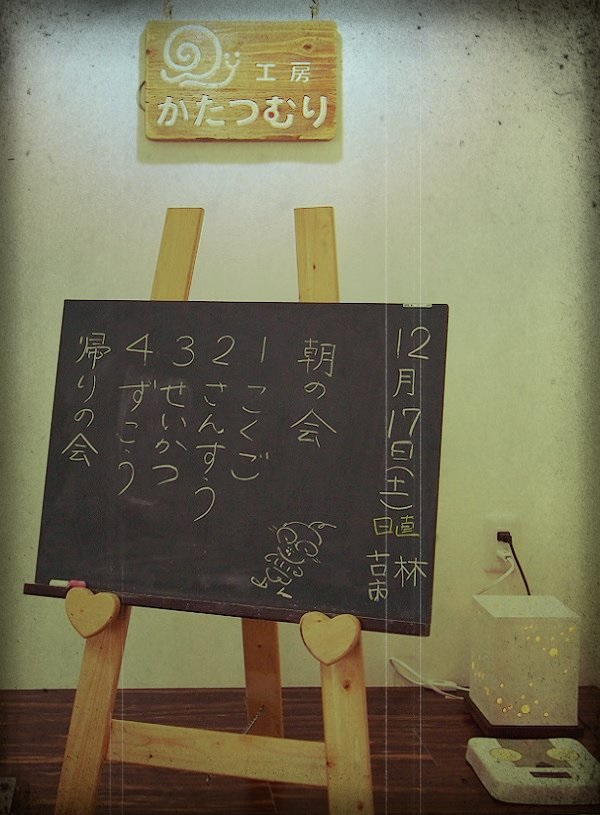 工房
かたつむり
12月17日(土)
日直 林
古市
朝の会
1 こくご
2 さんすう
3 せいかつ
4 ずこう
帰りの会